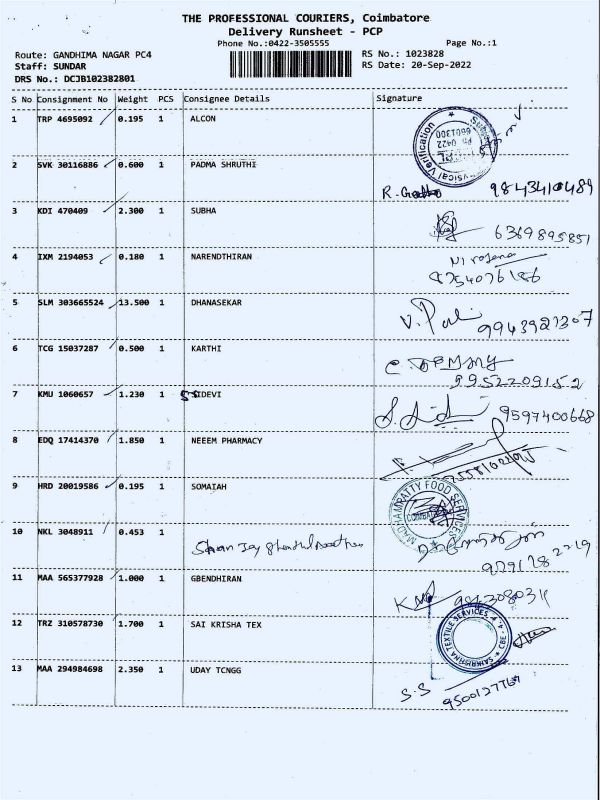 THE PROFESSIONAL COURIERS, Coimbatore
Delivery Runsheet - PCP
Phone No.:0422-3505555 Page No.:1
Route: GANDHIMA NAGAR PC4 RS No.: 1023828
Staff: SUNDAR RS Date: 20-Sep-2022
DRS No.: DCJB102382801
S No Consignment No Weight PCS Consignee Details Signature
1 TRP 4695092 0.195 1 ALCON
2 SVK 30116886 0.600 1 PADMA SHRUTHI
9843410489
3 KDI 470409 2.300 1 SUBHA
6369895851
4 IXM 2194053 0.180 1 NARENDTHIRAN
8754076186
5 SLM 303665524 13.500 1 DHANASEKAR
9943921307
6 TCG 15037287 0.500 1 KARTHI
9952209152
7 KMU 1060657 1.230 1 SIDEVI
9597400668
8 EDQ 17414370 1.850 1 NEEEM PHARMACY
9 HRD 20019586 0.195 1 SOMAIAH
MADHAMRATTY FOOD SERVICES
10 NKL 3048911 0.453 1
11 MAA 565377928 1.000 1 GBENDHIRAN
12 TRZ 310578730 1.700 1 SAI KRISHA TEX
SAIKRISHNA TEXTILE SERVICES
13 MAA 294984698 2.350 1 UDAY TCNGG
S.S